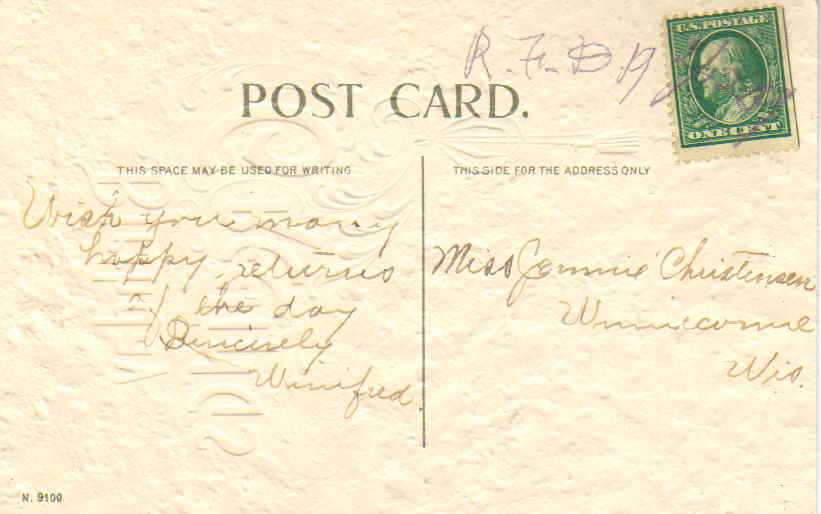 R. F. D. 19
U.S. POSTAGE
ONE CENT
POST CARD.
THIS SPACE MAY BE USED FOR WRITING
THIS SIDE FOR THE ADDRESS ONLY
Wish you many
happy returns
of the day
Sincerely
Winifred.
Miss Jennie Christensen
Winneconne
Wis.
N. 9100